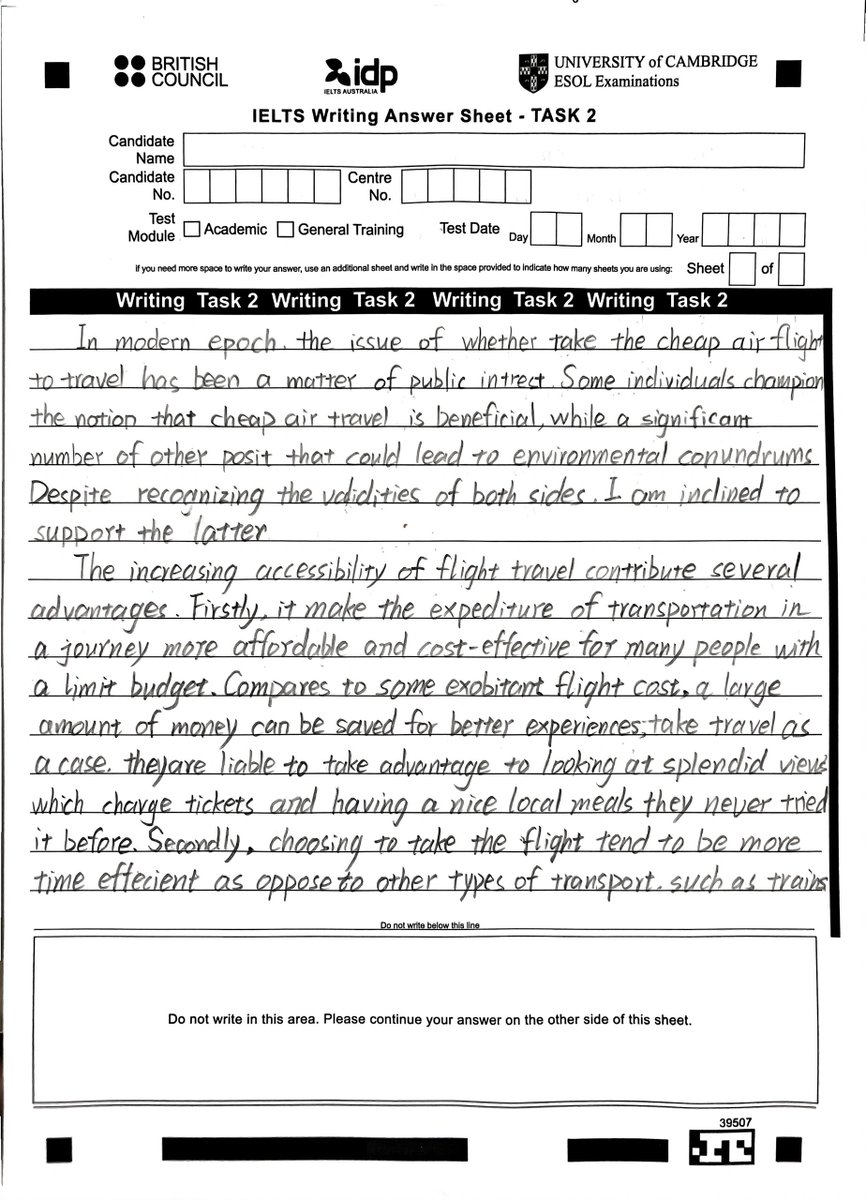 BRITISH COUNCIL
idp
IELTS AUSTRALIA
UNIVERSITY of CAMBRIDGE
ESOL Examinations
IELTS Writing Answer Sheet - TASK 2
Candidate Name
Candidate No.
Centre No.
Test Module
Academic
General Training
Test Date
Day
Month
Year
If you need more space to write your answer, use an additional sheet and write in the space provided to indicate how many sheets you are using:
Sheet of
Writing Task 2 Writing Task 2 Writing Task 2 Writing Task 2
In modern epoch. the issue of whether take the cheap air flight
to travel has been a matter of public intrect. Some individuals champion
the notion that cheap air travel is beneficial, while a significant
number of other posit that could lead to environmental conundrums
Despite recognizing the validities of both sides. I am inclined to
support the latter
The increasing accessibility of flight travel contribute several
advantages. Firstly, it make the expediture of transportation in
a journey more affordable and cost-effective for many people with
a limit budget. Compares to some exobitant flight cost, a large
amount of money can be saved for better experiences, take travel as
a case. they are liable to take advantage to looking at splendid views
which charge tickets and having a nice local meals they never tried
it before. Secondly, choosing to take the flight tend to be more
time effecient as oppose to other types of transport. such as trains
Do not write below this line
Do not write in this area. Please continue your answer on the other side of this sheet.
39507